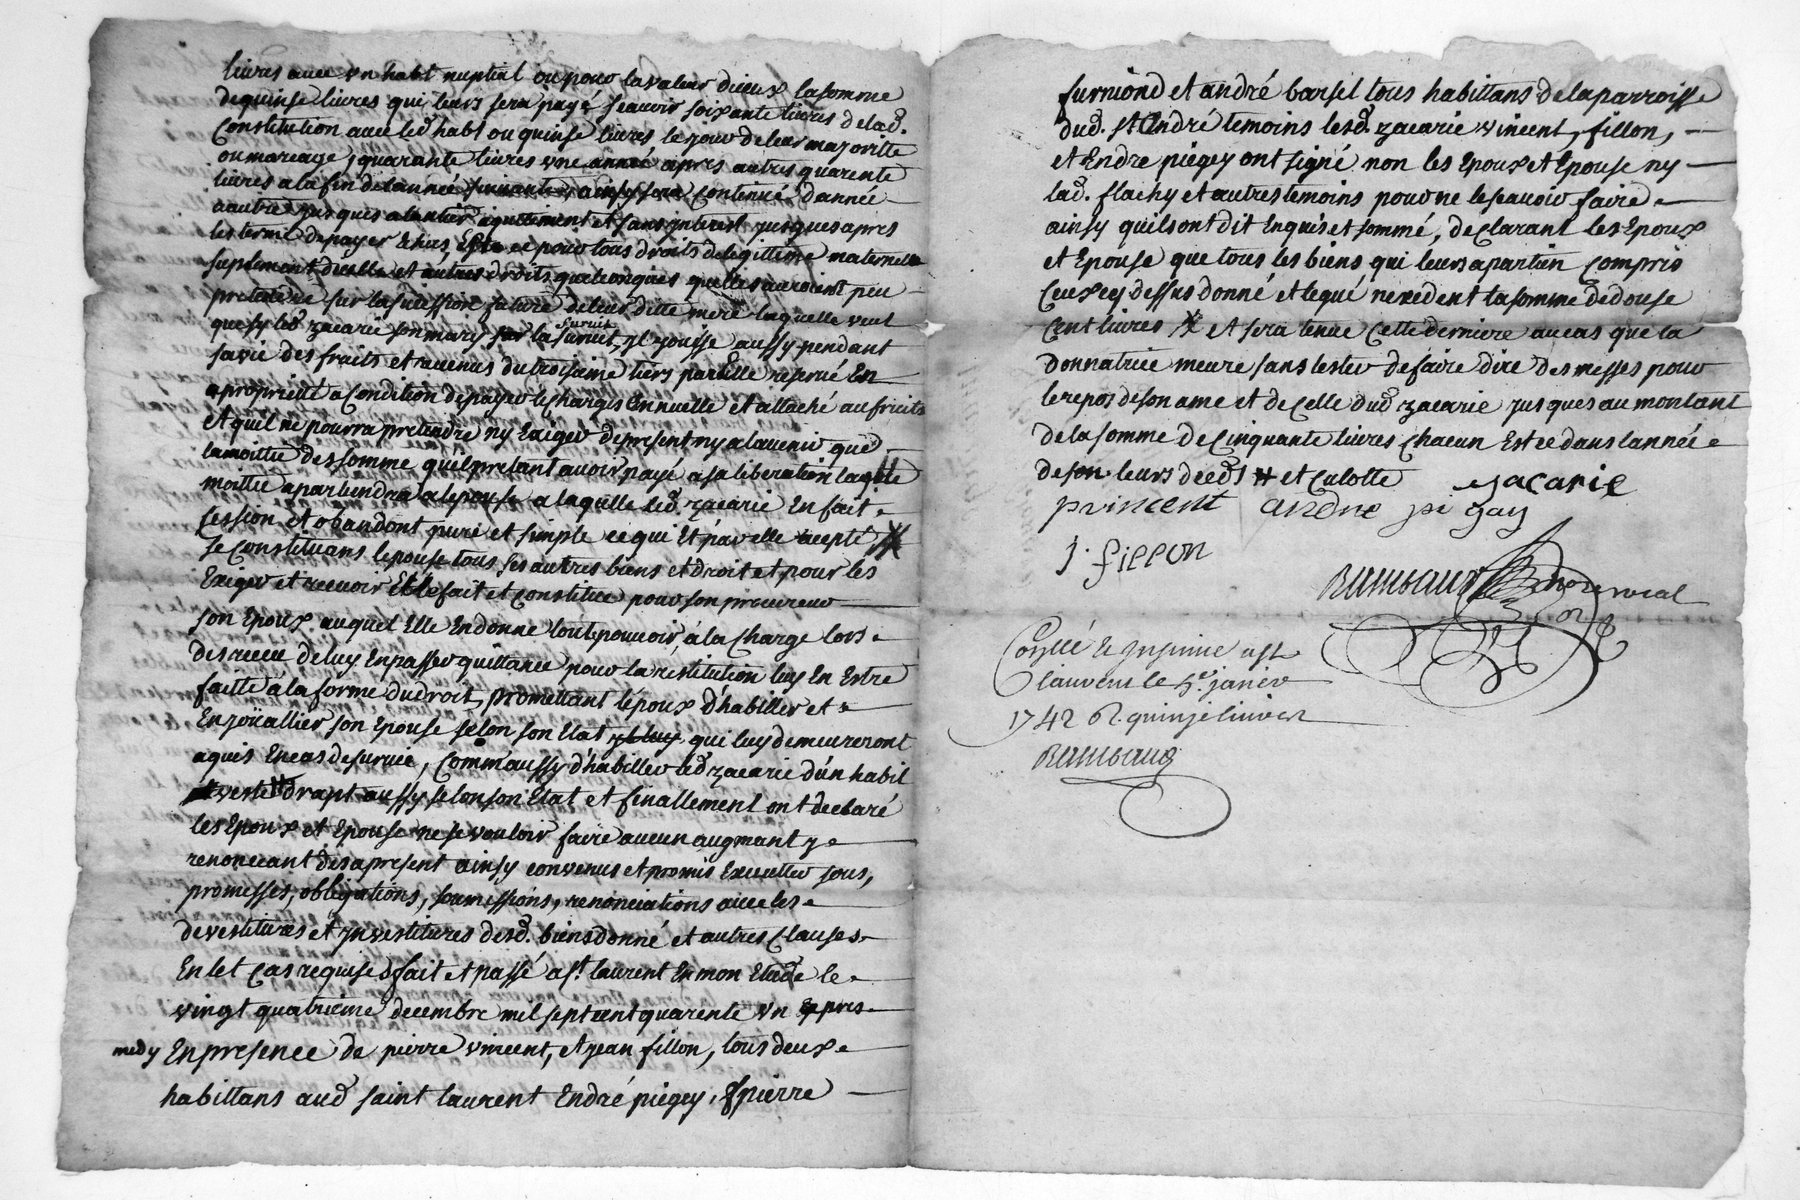 livres avec un habt nuptial ou pour la valeur diceux la somme
de quinse livres qui leurs sera payé scauoir soixante livres de lad.
Constitution auec led habt ou quinse livres le jour de leur majoritté
ou mareage, quarante livres une année apres autres quarente
livres a la fin de lannée suiuante, ainsy sera continué d'année
a autre jusques a lentier aquitement et sans jnterest jusques apres
les terme de payer Echus, Este ce pour tous droits de legittime maternelle
suplement dicelle et autres droits quelconques quelles auroient peu
pretendre sur la sucession future de leur ditte mere laquelle veut
que sy led zacarie son mary la suruit, jl jouisse aussy pendant
sa vie des fruits et reuenus du troisieme tiers par Elle reserué En
aproprieté a Condition de payer le charges Ennuelle et attaché au fruits
et quil ne pourra pretendre ny Exiger de present ny a lauenir que
la moittié des somme quil pretant auoir payé a sa liberation laqlle
moittié apartiendra a lepouse a laquelle led. zacarie En fait
cession et abandont pure et simple ce qui Et par elle acepté
se Constituans lepouse tous ses autres biens et droit et pour les
Exiger et receuoir Elle fait et constitue pour son procureur
son Epoux auquel Elle En donne tout pouvoir, a la charge lors
des receu de luy En passer quittance pour la restitution luy En Estre
faitte a la forme du droit, promettant lépoux d'habiller et
Enjoüallier son Epouse selon son Etat qui luy demeureront
aquis En cas de suruie, Comm'aussy d'habiller led zacarie d'un habil
drapt aussy selon son Etat et finallement ont declaré
les Epoux et Epouse ne se vouloir faire aucun augmant y
renonceant des a present ainsy convenus et promis Executter sous,
promesses, obligations, soumissions, renonciations auec les
devestitures et jnvestitures desd. biens donné et autres clauses
En tet cas requises fait et passé a st. laurent En mon Etude le
vingt quatrieme decembre mil sept cent quarente un apres
medy En presence de pierre vincent, et jean fillon, tous deux
habittans aud saint laurent Endré piegey, & pierre
furmond et andré barsel tous habittans de la parroisse
dud. st Endré temoins lesd. zacarie vincent, fillon,
et Endre piegey ont signé non les Epoux et Epouse ny
lad. flachy et autres temoins pour ne le scauoir faire
ainsy quils ont dit Enquis et sommé, declarant les Epoux
et Epouse que tous les biens qui leurs apartien compris
Ceux cy dessus donné et legué nexedent la somme de douse
cent livres et sera tenue cette derniere au cas que la
donnatrice meure sans tester de faire dire des messes pour
le repos de son ame et de celle dud zacarie jusques au montant
de la somme de cinquante livres chacun Est ce dans lannée
de leurs decéds et culotte zacarie
princent andre pi gay
j. fillon
Rambaud
Collé & jnsinué a st
laurent le 5e. janer
1742 R. quinze liures
Rambaud